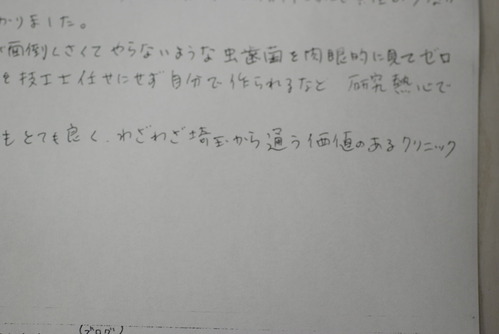 かりました。
が面倒くさくてやらないような虫歯菌を肉眼的に見てゼロ
を技工士任せにせず自分で作られるなど 研究熱心で
もとても良く、わざわざ埼玉から通う価値のあるクリニック
(ブログ)